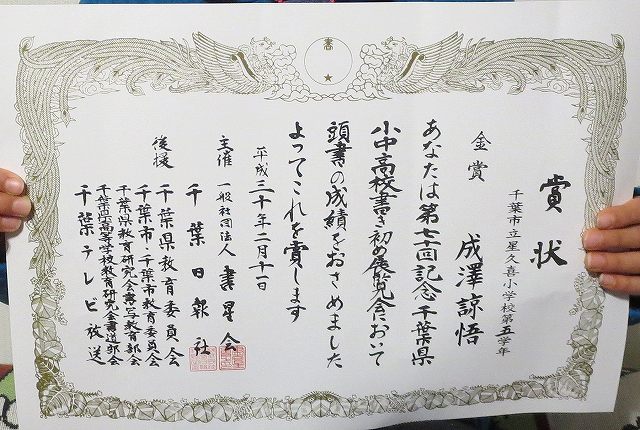 書
賞状
千葉市立星久喜小学校第五学年
金賞 成澤諒悟
あなたは第七十回記念千葉県
小中高校書き初め展覧会において
頭書の成績をおさめました
よってこれを賞します
平成三十年二月十一日
主催 一般社団法人 書星会
千葉日報社
後援 千葉県教育委員会
千葉市・千葉市教育委員会
千葉県教育研究会書写教育部会
千葉県高等学校教育研究会書道部会
千葉テレビ放送